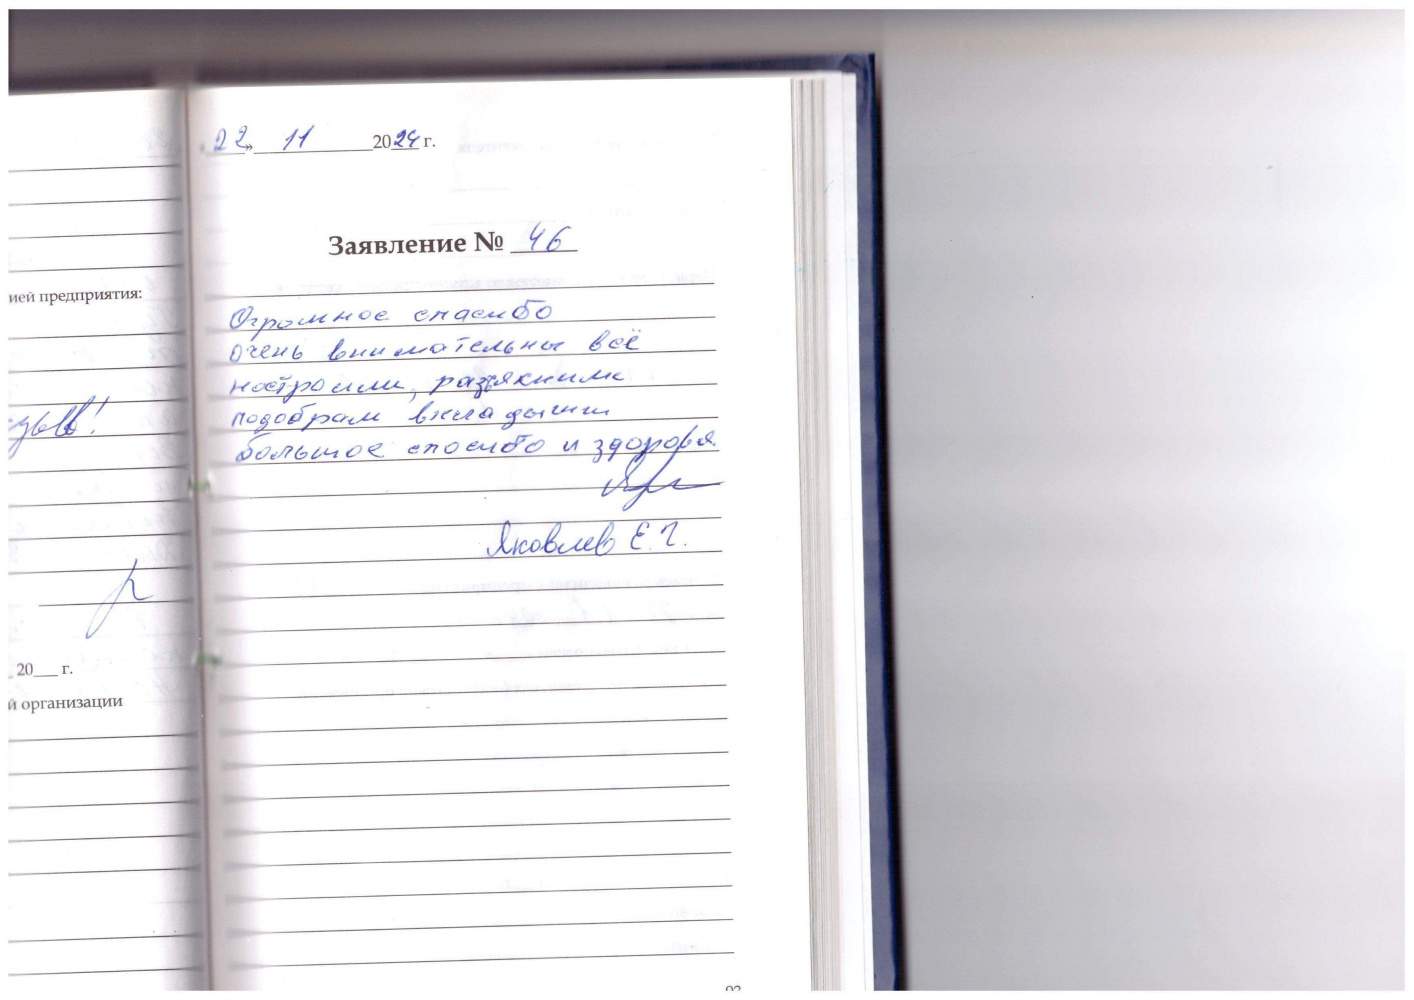 ией предприятия:
20___ г.
й организации
22» 11 2024 г.
Заявление № 46
Огромное спасибо
очень внимательны всё
настроили, разъяснили
подобрали вкладыши
большое спасибо и здоровья
Яковлев Е.Г.